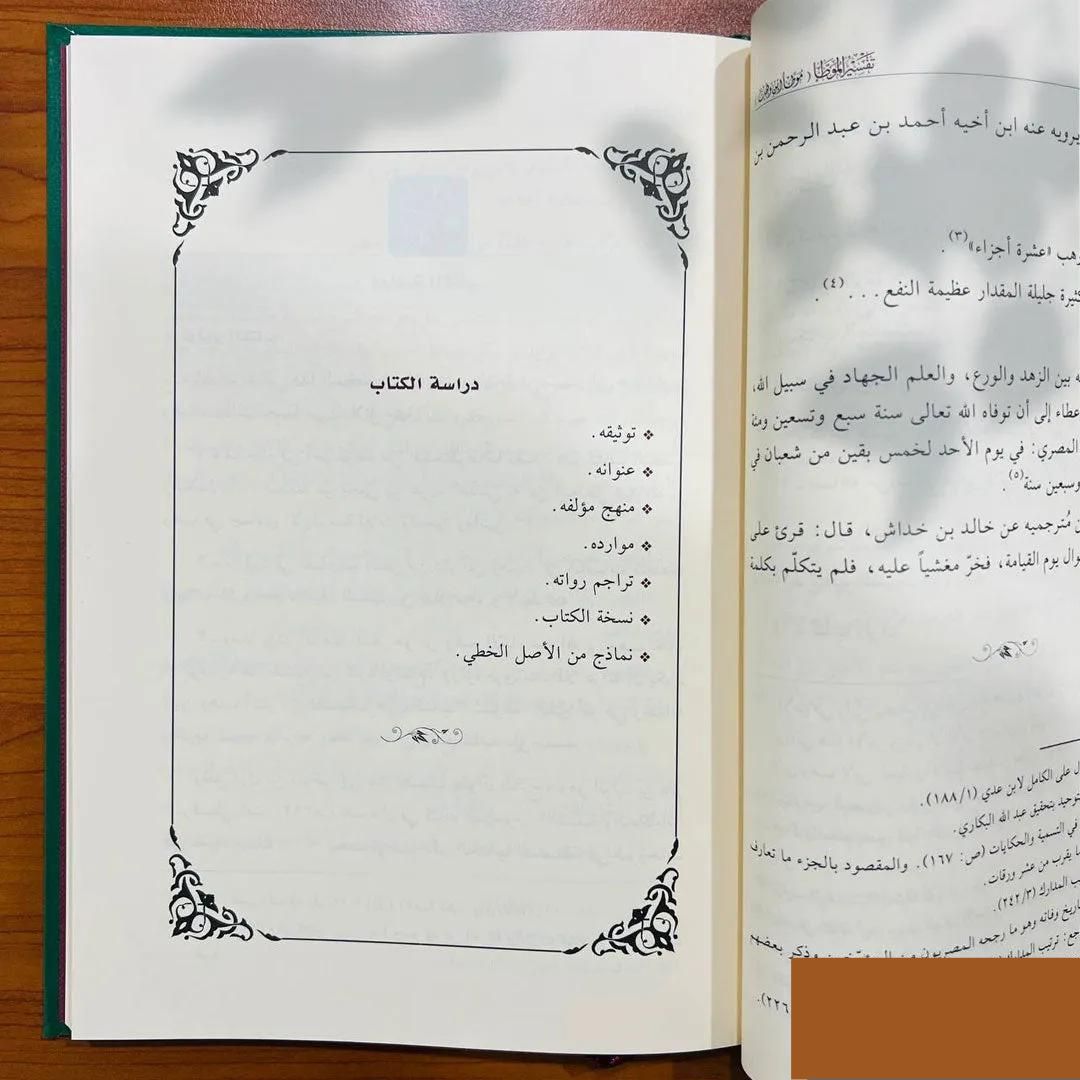 تفسير الموطأ
يرويه عنه ابن أخيه أحمد بن عبد الرحمن بن
وهب «عشرة أجزاء»(٣).
جليلة المقدار عظيمة النفع . . .(٤).
بين الزهد والورع، والعلم الجهاد في سبيل الله،
عطاء إلى أن توفاه الله تعالى سنة سبع وتسعين ومئة
المصري: في يوم الأحد لخمس بقين من شعبان في
وسبعين سنة(٥).
مُترجميه عن خالد بن خداش، قال: قرئ على
يوم القيامة، فخرّ مغشياً عليه، فلم يتكلّم بكلمة
على الكامل لابن عدي (١/١٨٨).
بتحقيق عبد الله البكاري.
في التسمية والحكايات (ص: ١٦٧). والمقصود بالجزء ما تعارف
يقرب من عشر ورقات.
المدارك (٣/٢٤٢).
وفاته وهو ما رجحه المصريون
وذكر بعضهم
ترتيب
٢٢٦).
دراسة الكتاب
❖ توثيقه.
❖ عنوانه.
❖ منهج مؤلفه.
❖ موارده.
❖ تراجم رواته.
❖ نسخة الكتاب.
❖ نماذج من الأصل الخطي.